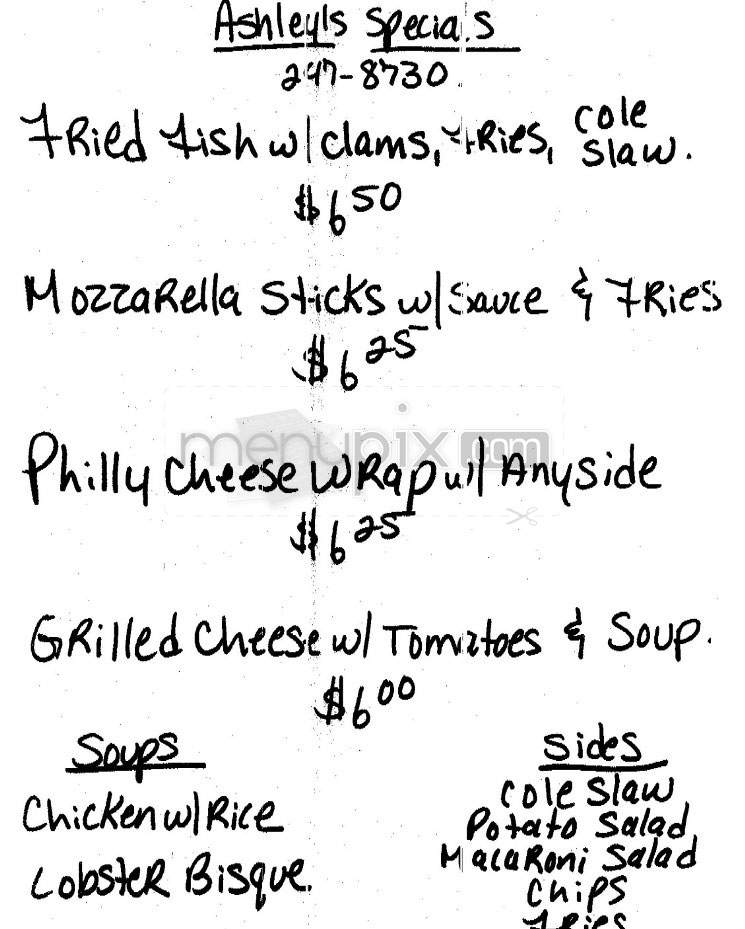 Ashley's Specials
247-8730
Fried Fish w/ Clams, Fries, Cole Slaw.
$6.50
Mozzarella Sticks w/ Sauce & Fries
$6.25
menupix.com
Philly Cheese Wrap w/ Anyside
$6.25
Grilled Cheese w/ Tomatoes & Soup.
$6.00
Soups
Chicken w/ Rice
Lobster Bisque.
Sides
Cole Slaw
Potato Salad
Macaroni Salad
Chips
Fries